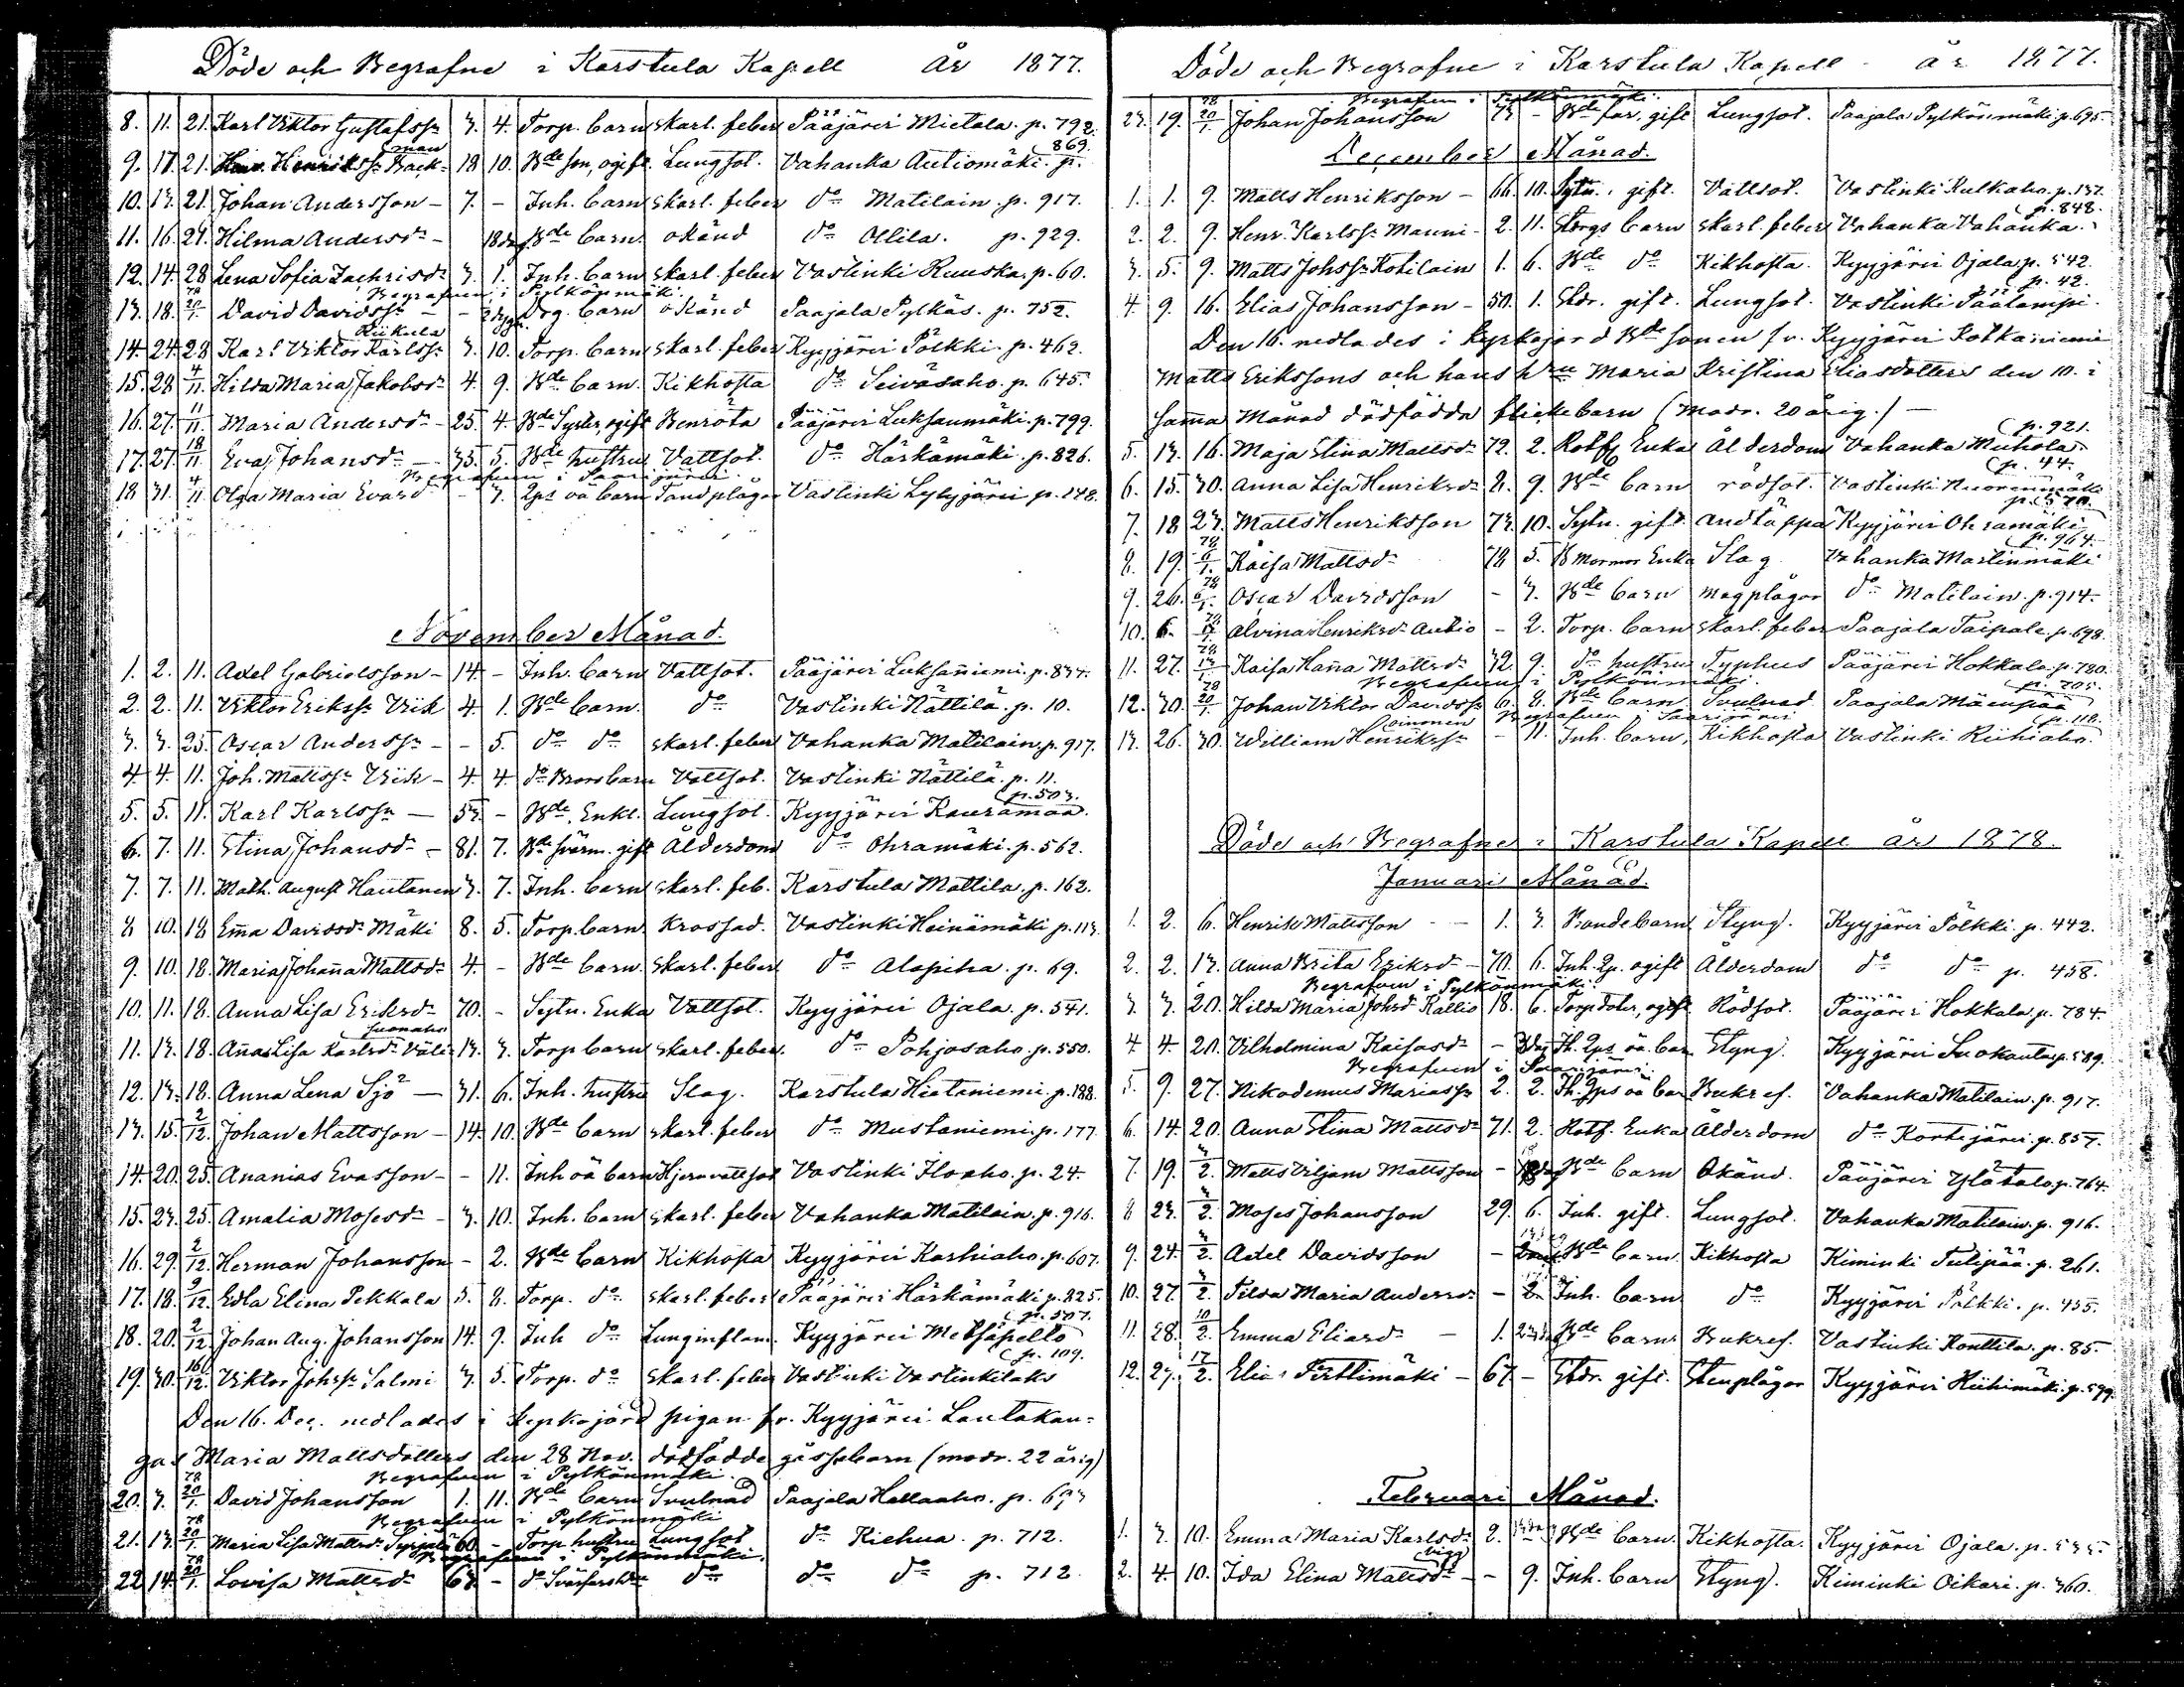 Döde och Begrafne i Karstula Kapell År 1877.
8. 11. 21. Karl Viktor Gustafss: 3. 4. Torp. barn skarl. feber Pääjärvi Mietala. p. 792.
9. 17. 21. Henrikss: Back= man 18 10. Bde son, ogift. Lungsot. Vahanka Autiomäki. p. 869.
10. 13. 21. Johan Andersson - 7. - Inh. barn skarl. feber do Matilain. p. 917.
11. 16. 21. Hilma Andersdr - 18 dg Bde barn. okänd do Ollila. p. 929.
12. 14. 28 Lena Sofia Zachrisdr 3. 1. Inh. barn skarl. feber Vastinki Ruuska. p. 60.
Begrafven i Pylkönmäki.
13. 18. 78 20/1. David Davidss: - - 2 dygn. Drg. barn okänd Paajala Pylkäs. p. 752.
14. 24. 28 Karl Viktor Karlss: Riikula 3. 10. Torp. barn skarl. feber Kyyjärvi Pölkki. p. 462.
15. 28 4/11. Hilda Maria Jakobsdr 4. 9. Bde barn. Kikhosta do Seiväsaho. p. 645.
16. 27. 11/11. Maria Andersdr - 25. 4. Bde Syster, ogift Benröta Pääjärvi Luksanmäki. p. 799.
17. 27. 18/11 Eva Johansdr - 35. 5. Bde hustru Vattsot. do Härkämäki. p. 826.
Begrafven i Saarijärvi
18 31. 4/11 Olga Maria Evasdr - 3. 2ps oä barn Tandplågor Vastinki Lylyjärvi p. 148.
November Månad.
1. 2. 11. Axel Gabrielsson - 14. - Inh. barn Vattsot. Pääjärvi Luksanniemi. p. 837.
2. 2. 11. Viktor Erikss: Vik 4. 1. Bde barn. do Vastinki Hättilä. p. 10.
3. 3. 25. Oscar Anderss: - - 5. do do skarl. feber Vahanka Matilain. p. 917.
4. 4. 11. Joh. Mattss: Vik - 4. 4. do Brors barn Vattsot. Vastinki Hättilä. p. 11.
5. 5. 11. Karl Karlss: - 53. - Bde, Enkl. Lungsot. Kyyjärvi Kauramaa. p. 503.
6. 7. 11. Stina Johansdr - 81. 7. Bde svärm. gift Ålderdom do Ohramäki. p. 562.
7. 7. 11. Math. August Hautanen 3. 7. Inh. barn skarl. feb. Karstula Mattila. p. 162.
8 10. 18 Emma Davidsdr Mäki 8. 5. Torp. barn Krossad. Vastinki Heinämäki p. 113.
9. 10. 18. Maria Johanna Mattsdr 4. - Bde barn. skarl. feber do Alapiha. p. 69.
10. 11. 18. Anna Lisa Eriksdr 70. - Sytn. Enka Vattsot. Kyyjärvi Ojala. p. 541.
11. 13. 18. Anna Lisa Karlsdr Väli= suonaho 13. 3. Torp barn skarl. feber. do Pohjosaho. p. 550.
12. 13. 18. Anna Lena Sjö - 31. 6. Inh. hustru Slag. Karstula Hietaniemi. p. 188.
13. 15. 2/12. Johan Mattsson - 14. 10. Bde barn skarl. feber do Mustaniemi. p. 177.
14. 20. 25. Ananias Evasson - - 11. Inh oä barn Hjernvattsot Vastinki Iloaho. p. 24.
15. 23. 25. Amalia Mosesdr - 3. 10. Inh. barn skarl. feber Vahanka Matilain. p. 916.
16. 29. 2/12. Herman Johansson - 2. Bde barn Kikhosta Kyyjärvi Kashiaho. p. 607.
17. 18. 9/12 Edla Elina Pekkala 5. 8. Torp. do skarl. feber Pääjärvi Härkämäki p. 825.
18. 20. 2/12. Johan Aug. Johansson 14. 9. Inh do Lunginflam. Kyyjärvi Metsäpelto p. 507.
19. 30. 16/12. Viktor Johss: Salmi 3. 5. Torp. do skarl. feber Vastinki Vastinkitalo p. 109.
Den 16. Dec. nedlades i kyrkojord pigan fr. Kyyjärvi Lautakan=
gas Maria Mattsdotters den 28 Nov. dödfödde gossebarn (modr. 22 årig)
Begrafven i Pylkönmäki.
20. 3. 78 20/1. David Johansson 1. 11. Bde barn Svulnad Paajala Hallaaho. p. 693
Begrafven i Pylkönmäki
21. 13. 78 20/1. Maria Lisa Mattsdr 60. - Torp hustru Lungsot do Kiehua. p. 712.
Begrafven i Pylkönmäki.
22 14. 78 20/1. Lovisa Mattsdr 63. - do do do do p. 712.
Döde och Begrafne i Karstula Kapell - år 1877.
Begrafven i Pylkönmäki.
23. 19. 78 20/1. Johan Johansson 73 - Bde far, gift Lungsot. Paajala Pylkönmäki p. 695.
December Månad.
1. 1. 9. Matts Henriksson - 66. 10. Sytn., gift. Vattsot. Vastinki Kulkaho. p. 137.
2. 2. 9. Henr. Karlss: Mauni - 2. 11. Storgs barn skarl. feber Vahanka Vahanka. p. 848.
3. 5. 9. Matts Johss: Kotilain 1. 6. Bde do Kikhosta. Kyyjärvi Ojala p. 542.
4. 9. 16. Elias Johansson - 50. 1. Stdr. gift. Lungsot. Vastinki Päälampi. p. 42.
Den 16. nedlades i kyrkojord Bde sonen fr. Kyyjärvi Kotkaniemi
Matts Erikssons och hans hru Maria Kristina Eliasdotters den 10. i
samma Månad dödfödda flickebarn (modr. 20 årig.) -
5. 13. 16. Maja Stina Mattsdr 72. 2. Rotfg Enka Ålderdom Vahanka Muhola. p. 921.
6. 15. 30. Anna Lisa Henriksdr 8. 9. Bde barn rödsot. Vastinki Nuorenmäki p. 44.
7. 18 23. Matts Henriksson 73. 10. Sytn. gift. andtäppa Kyyjärvi Ohramäki p. 570.
8. 19. 78 6/1. Kaisa Mattsdr 78 5. B Mormor Enka Slag Vahanka Martinmäki p. 964.
9. 26. 78 6/1. Oscar Davidsson - 3. Bde barn magplågor do Matilain. p. 914.
10. 6. 78 Alvina Henriksdr Autio - 2. Torp. barn skarl. feber Paajala Taipale. p. 698.
11. 27. 78 13/1 Kaisa Hanna Mattsdr 32 9. do hustru Typhus Pääjärvi Hokkala. p. 780.
Begrafven i Pylkönmäki.
12. 30. 78 20/1. Johan Viktor Davidss: 6. 8. Bde barn Svulnad Paajala Mäenpää p. 705.
Begrafven i Saarijärvi
13. 26. 30. William Henrikss: Poimonen - 11. Inh. barn, Kikhosta Vastinki Riihiaho. p. 118.
Döde och Begrafne i Karstula Kapell år 1878.
Januari Månad.
1. 2. 6. Henrik Mattsson - - 1. 3. Bonde barn Styng. Kyyjärvi Pölkki. p. 442.
2. 2. 13. Anna Brita Eriksdr - 70. 6. Inh. Qp. ogift Ålderdom do do p. 458.
Begrafven i Pylkönmäki.
3. 3. 20. Hilda Maria Johsdr Kallio 18. 6. Torp doter, ogift Rödsot. Pääjärvi Hokkala. p. 784.
4. 4. 20. Vilhelmina Kaisasdr - Ih. Qps oä bar Styng. Kyyjärvi Suokanta p. 589.
Begrafven i Saarijärvi.
5. 9. 27. Nikodemus Mariass: 2. 2. Ih. Qps oä bar Bukref. Vahanka Matilain. p. 917.
6. 14. 20. Anna Stina Mattsdr 71. 2. Rotf. Enka Ålderdom do Kortejärvi. p. 857.
7. 19. 3/2. Matts Viljam Mattsson - Bde barn Okänd. Pääjärvi Ylätalo p. 764.
8 23. 3/2. Moses Johansson 29. 6. Inh. gift. Lungsot. Vahanka Matilain. p. 916.
9. 24. 3/2. Axel Davidsson - Bde barn. Kikhosta Kiminki Tulipää. p. 261.
10. 27. 3/2. Tilda Maria Andersdr - 2. Inh. barn do Kyyjärvi Pölkki. p. 455.
11. 28. 10/2. Emma Eliasdr - 1. Bde barn. Bukref. Vastinki Konttila. p. 85.
12. 27. 17/2. Elias Perttimäki - 67. - Stdr. gift. Stenplågor Kyyjärvi Hiihimäki. p. 599.
Februari Månad.
1. 3. 10. Emma Maria Karlsdr 2. Bde barn. Kikhosta. Kyyjärvi Ojala. p. 535.
2. 4. 10. Ida Elina Mattsdr - - 9. Inh. barn Styng. Kiminki Oikari. p. 360.